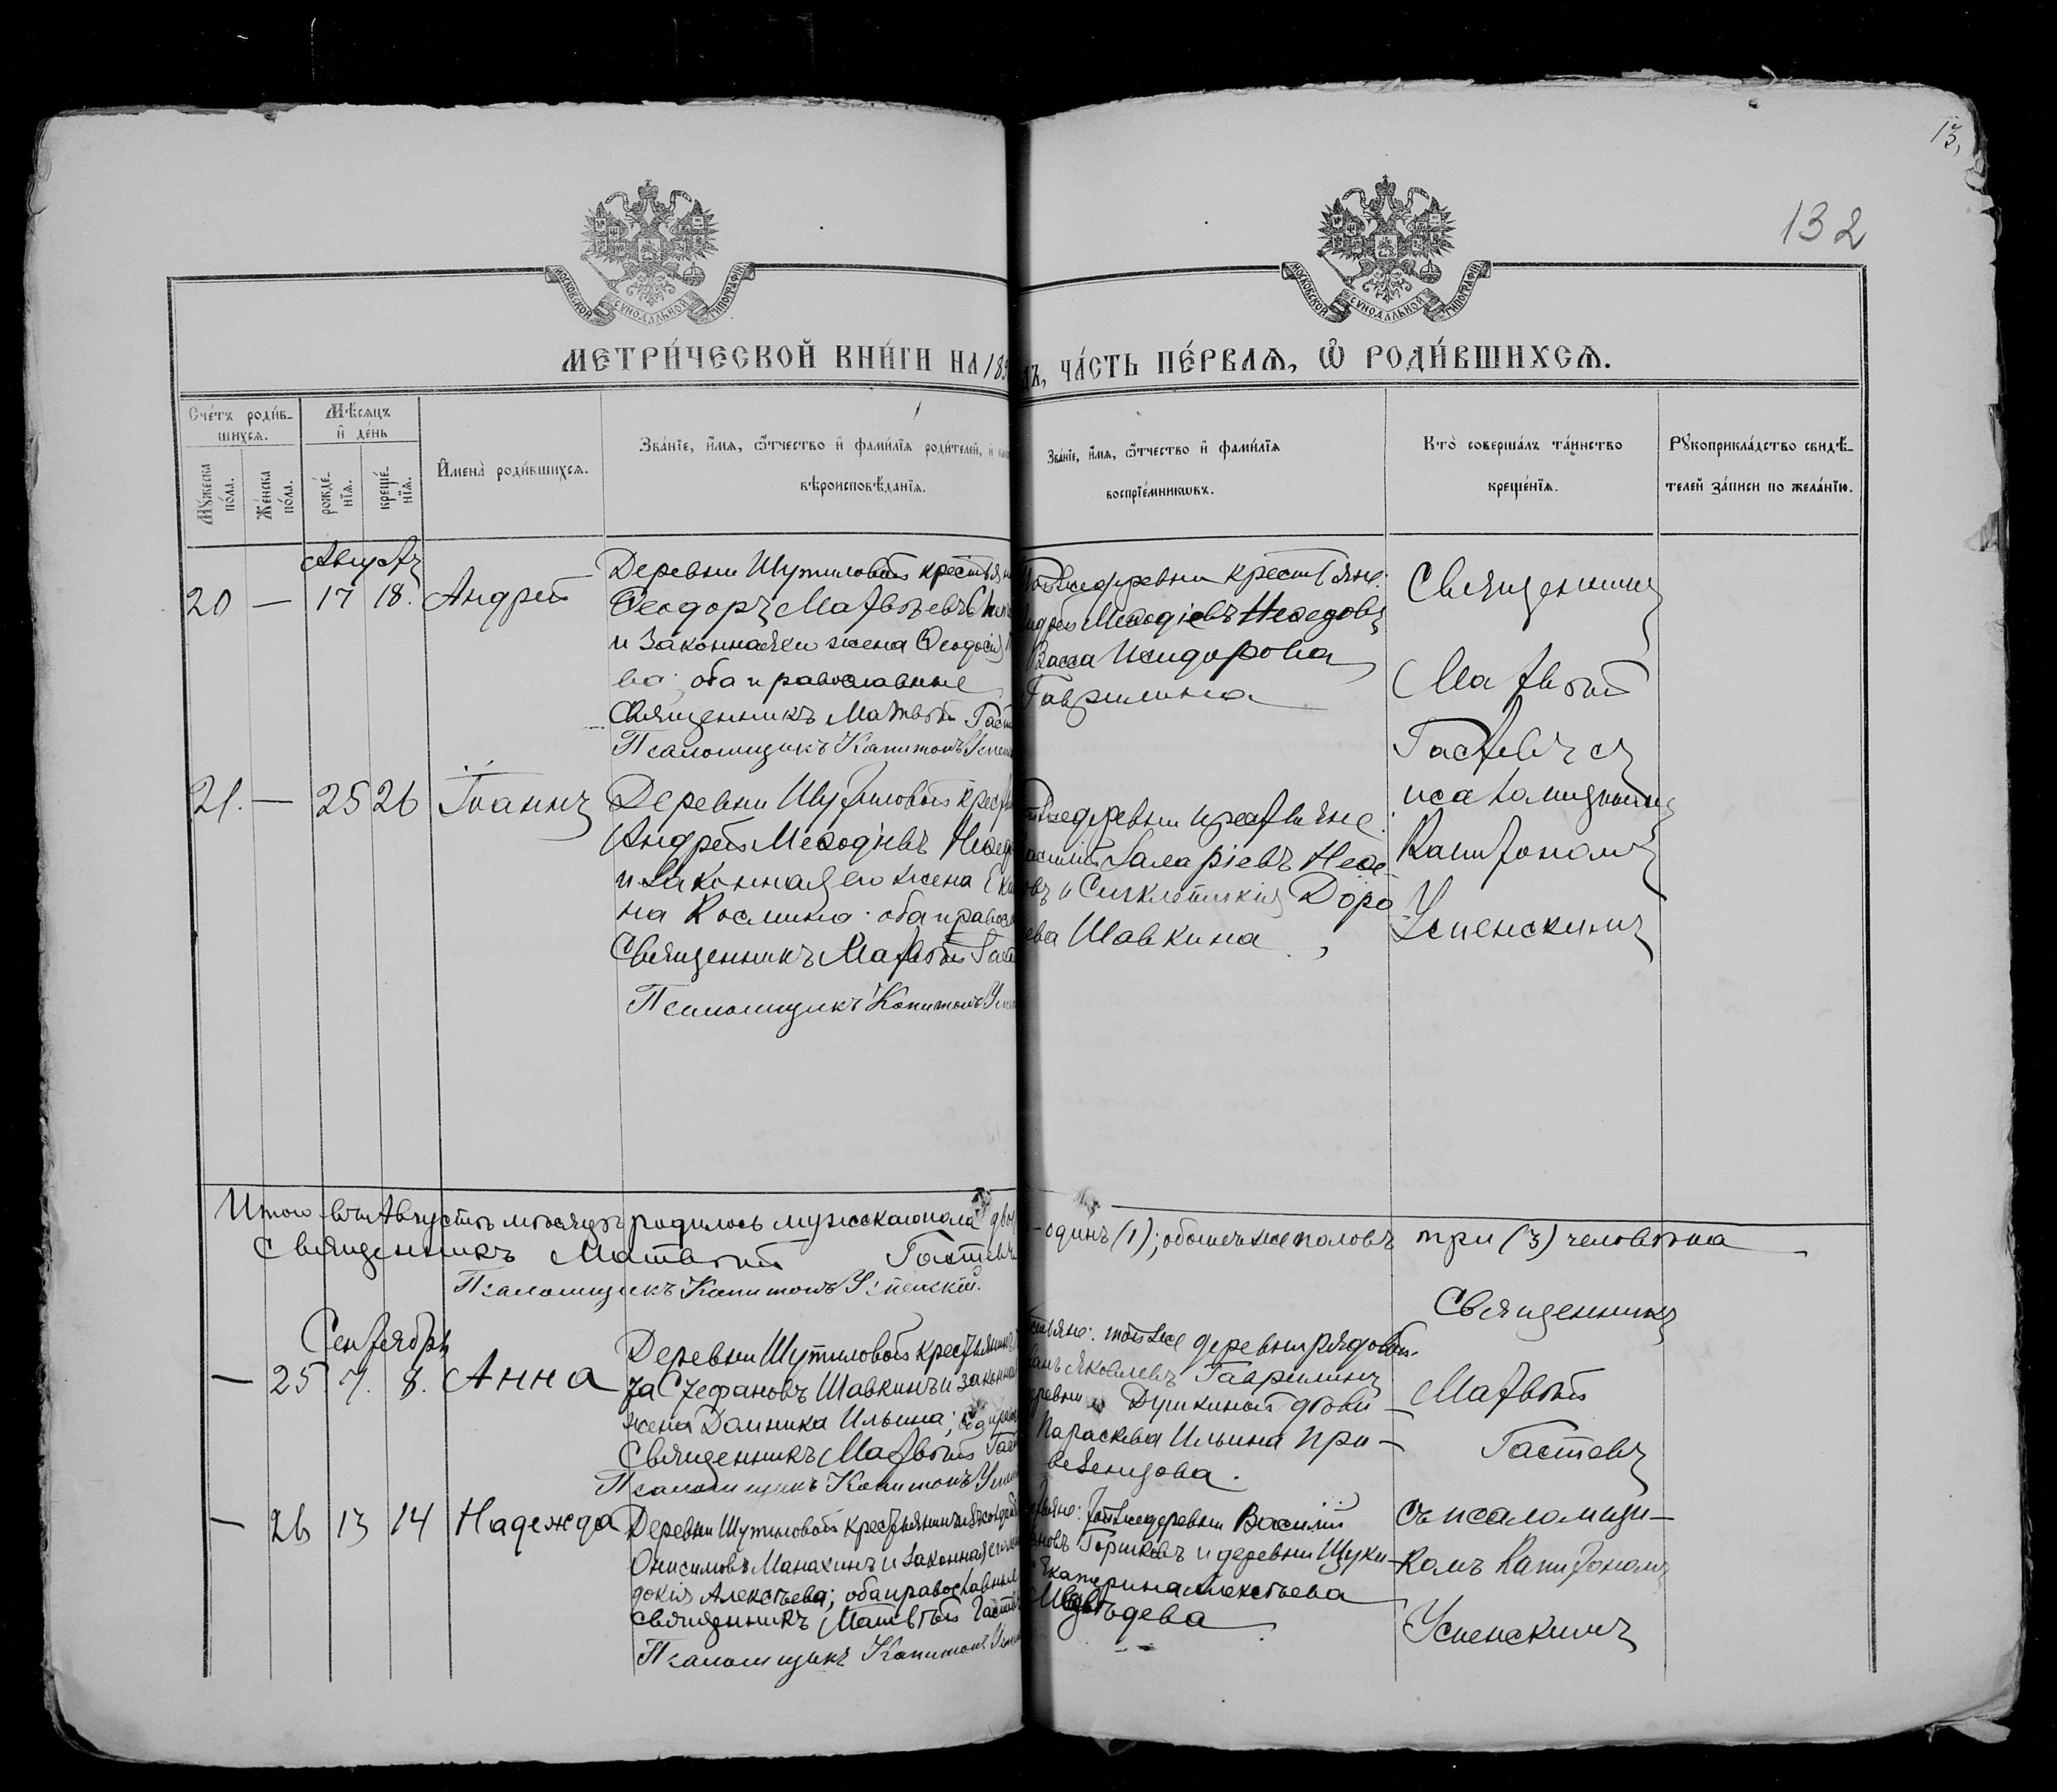 13,
132
МОСКОВСКОЙ СѴНОДАЛЬНОЙ ТИПОГРАФІИ
МОСКОВСКОЙ СѴНОДАЛЬНОЙ ТИПОГРАФІИ
МЕТРИ́ЧЕСКОЙ КНИ́ГИ НА 189
ЧА́СТЬ ПЕ́РВАѦ, Ѽ РОДИ́ВШИХСѦ.
Сче́тъ роди́в-
шихсѧ.
Мѣ́сѧцъ
и҆ де́нь
Мꙋ́жеска
по́ла.
Же́нска
по́ла.
рожде́-
нїѧ.
креще́-
нїѧ.
И҆мена̀ роди́вшихсѧ.
Зва́нїе, и҆́мѧ, ѻ҆́тчество и҆ фами́лїѧ роди́телей, и҆
вѣроисповѣ́данїѧ.
Зва́нїе, и҆́мѧ, ѻ҆́тчество и҆ фами́лїѧ
воспрїе́мникѡвъ.
Кто̀ соверша́лъ та́инство
креще́нїѧ.
Рꙋкоприкла́дство свидѣ́-
телей за́писи по жела́нїю.
Августъ
20 — 17 18. Андрей
Деревни Шутиловой крестьян
Ѳеодоръ Матвѣевъ
и законная его жена Ѳеодосія
ва; оба православные
Священникъ Матвѣй Гаст
Псаломщикъ Капитонъ Успен
Тойже деревни крестьяне:
Андрей Меѳодіевъ Неѳедовъ
Васса Исидорова
Гаврилина
Священникъ
Матвѣй
Гастевъ съ
псаломщикомъ
Капитономъ
Успенскимъ
21. — 25 26 Іоаннъ
Деревни Шутиловой крестьян
Андрей Меѳодіевъ Неѳед
и законная его жена Ека
на Космина; оба правосл
Священникъ Матвѣй Гаст
Псаломщикъ Капитонъ Успен
тойже деревни крестьяне:
Василій Назаріевъ Неѳе-
овъ и Синклитикія Доро
ева Шавкина
Итого въ Августѣ мѣсяцѣ родилось мужскаго пола двое
одинъ (1); обоихъ же половъ три (3) человѣка
Священникъ Матвѣй Гастевъ
Псаломщикъ Капитонъ Успенскій.
Сентябрь
— 25. 7. 8. Анна
Деревни Шутиловой крестьянинъ
за Стефановъ Шавкинъ и законная
жена Домника Ильина;
Священникъ Матвѣй Гаст
Псаломщикъ Капитонъ Успен
стьяне: тойже деревни рядовой
Яковлевъ Гаврилинъ
деревни Душкиной
Параскева Ильина При-
везенцова.
Священникъ
Матвѣй
Гастевъ
съ псаломщи-
комъ Капитономъ
Успенскимъ
— 26 13 14 Надежда
Деревни Шутиловой крестьянинъ
Онисимовъ Манахинъ и законная его жена
докія Алексѣева; оба православные
священникъ Матвѣй Гастевъ
Псаломщикъ Капитонъ Успен
тойже деревни Василій
ановъ Горшковъ и деревни Щуки-
Екатерина Алексѣева
Медвѣдева